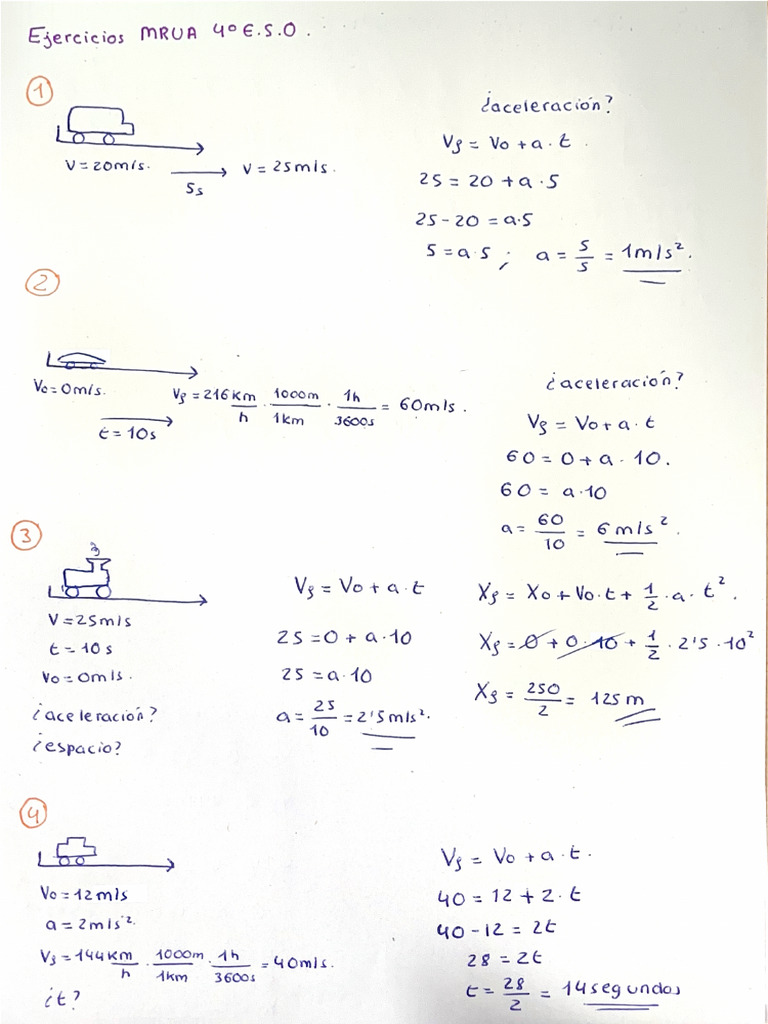 Ejercicios MRUA 4º E.S.O.
1
V = 20m/s. 5s V = 25m/s.
¿aceleración?
Vf = Vo + a · t.
25 = 20 + a · 5
25 - 20 = a·5
5 = a·5 ; a = 5/5 = 1m/s².
2
Vo = 0m/s. Vf = 216 Km/h · 1000m/1km · 1h/3600s = 60m/s.
t = 10s
¿aceleración?
Vf = Vo + a · t
60 = 0 + a · 10.
60 = a·10
a = 60/10 = 6 m/s².
3
V = 25m/s
t = 10s
Vo = 0m/s.
¿aceleración?
¿espacio?
Vf = Vo + a · t
25 = 0 + a · 10
25 = a · 10
a = 25/10 = 2'5 m/s².
Xf = Xo + Vo · t + 1/2 · a · t².
Xf = 0 + 0 · 10 + 1/2 · 2'5 · 10²
Xf = 250/2 = 125 m
4
Vo = 12m/s
a = 2m/s².
Vf = 144 Km/h · 1000m/1km · 1h/3600s = 40m/s.
¿t?
Vf = Vo + a · t.
40 = 12 + 2 · t
40 - 12 = 2t
28 = 2t
t = 28/2 = 14 segundos